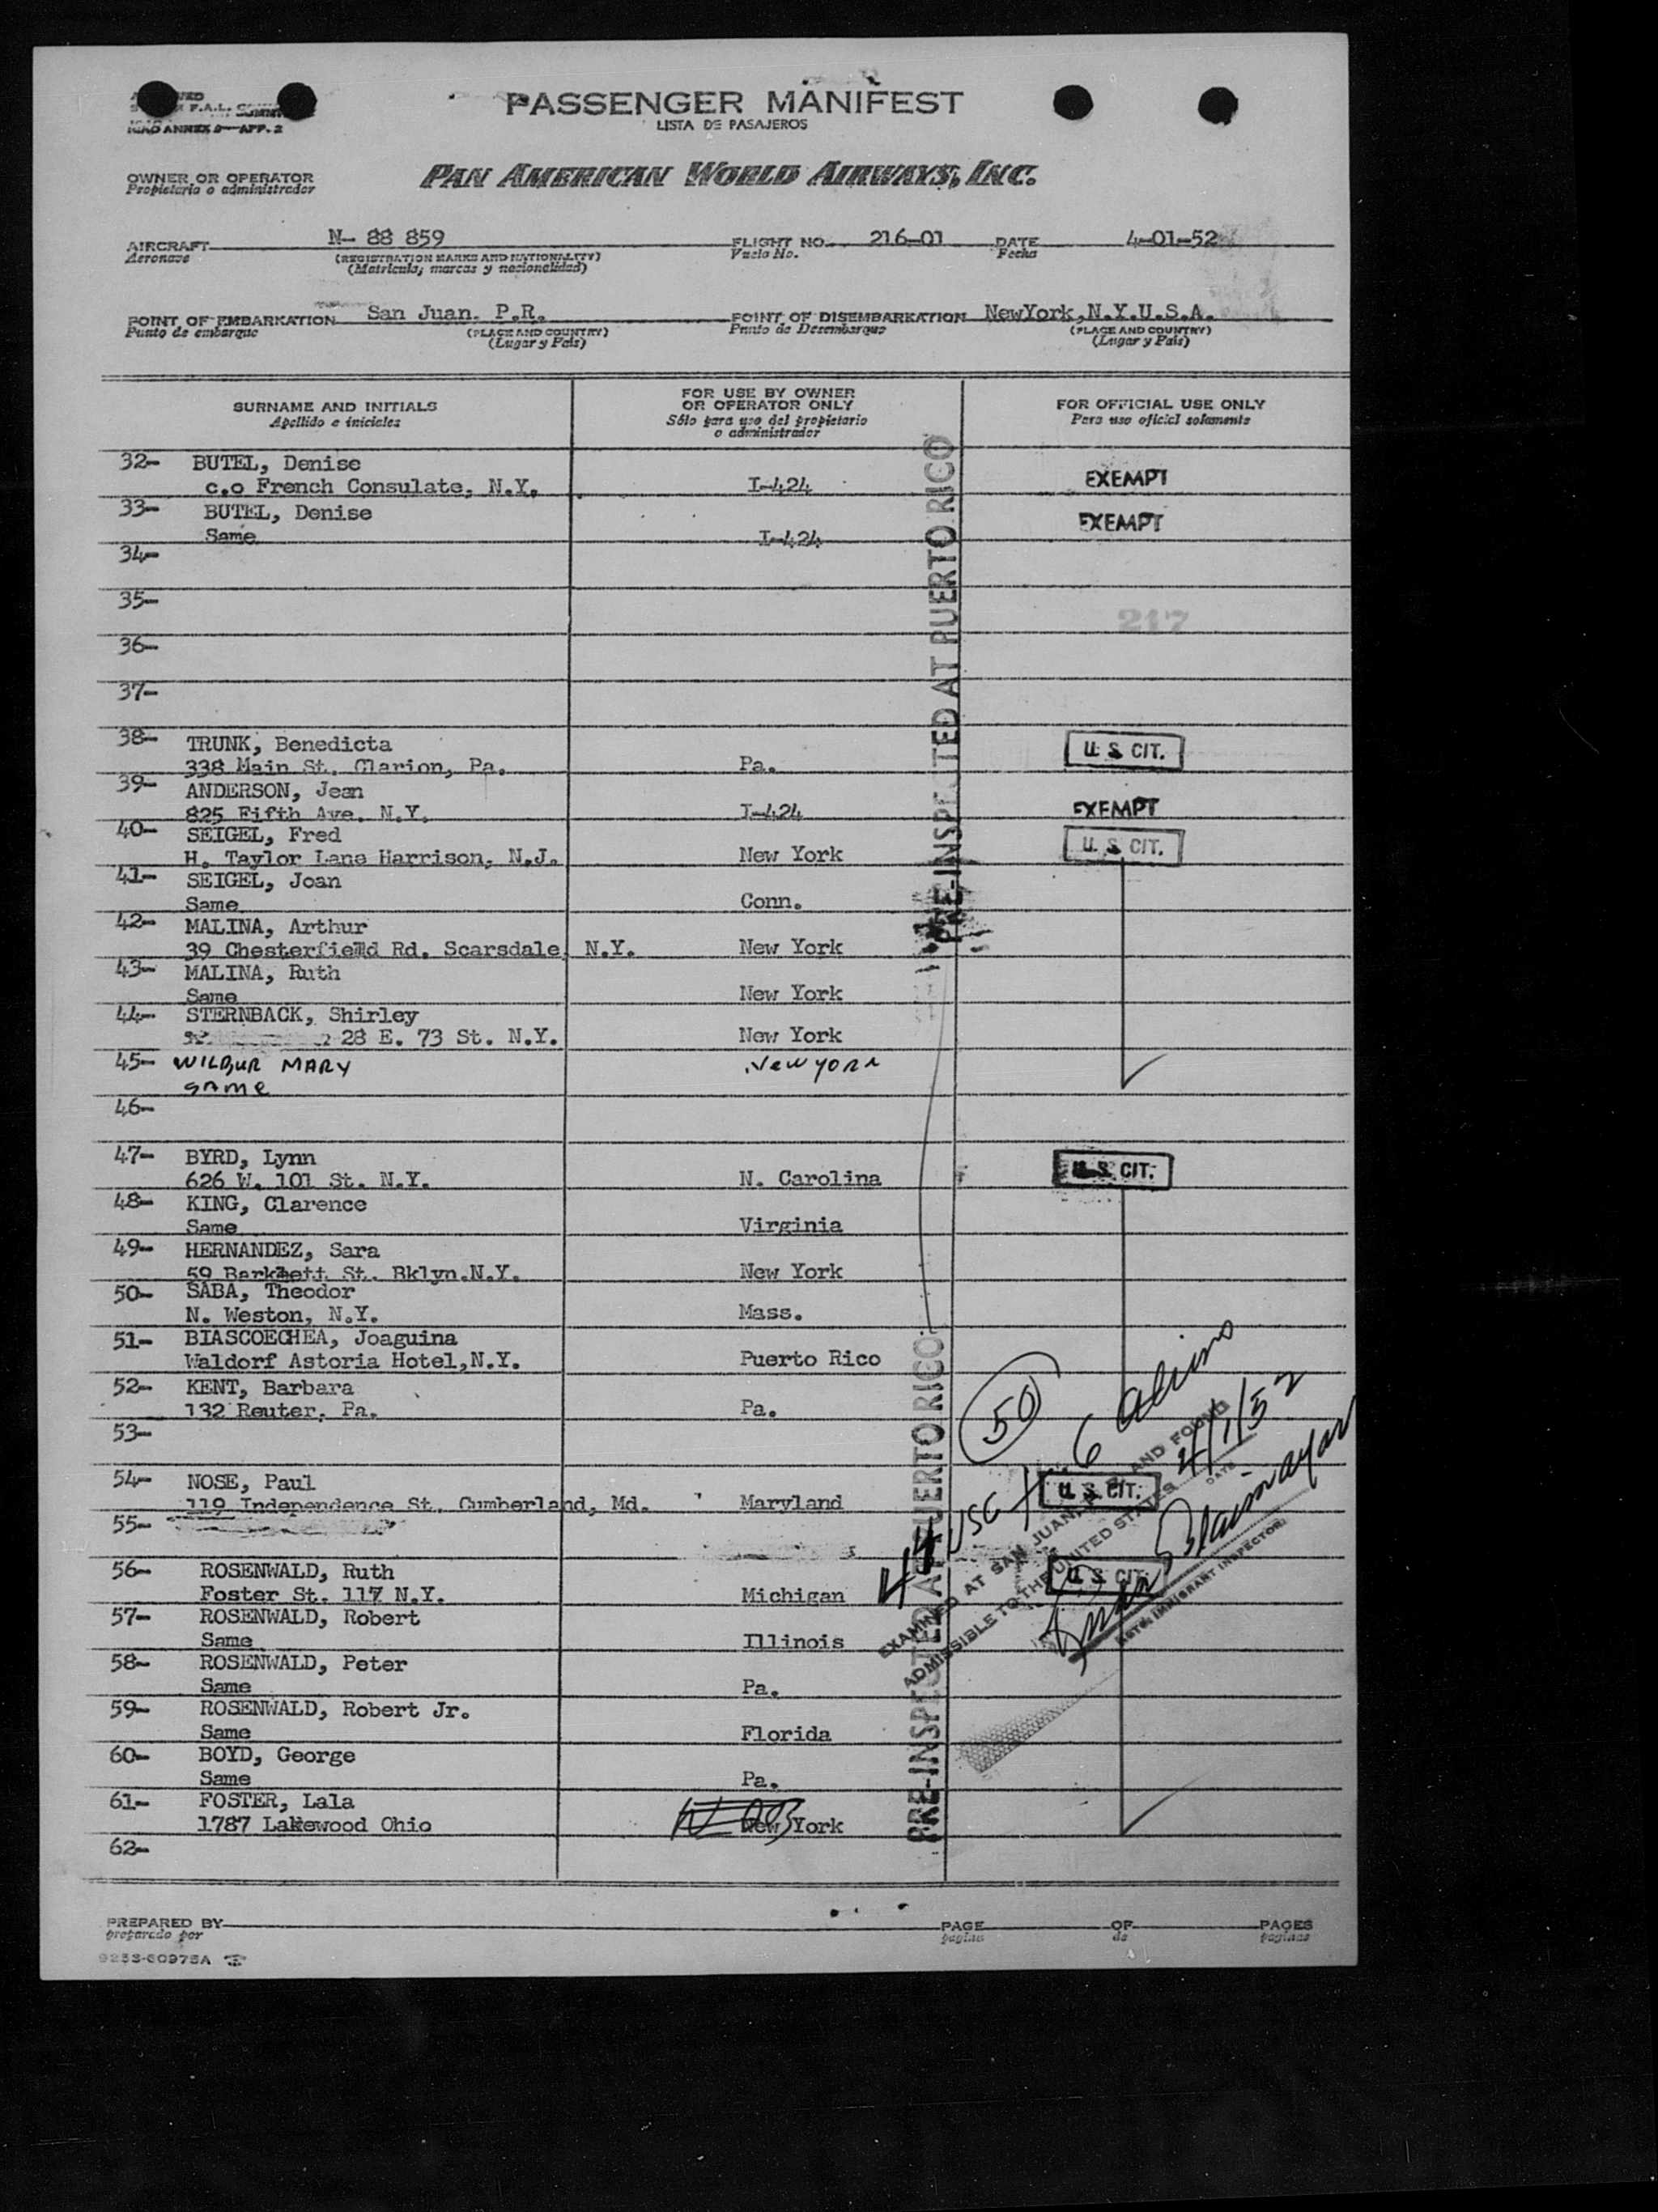 PASSENGER MANIFEST
LISTA DE PASAJEROS
F.A.L.
ICAO ANNEX 9—APP. 2
OWNER OR OPERATOR
Propietario o administrador
PAN AMERICAN WORLD AIRWAYS, INC.
AIRCRAFT N- 88 859 FLIGHT NO. 216-01 DATE 4-01-52
Aeronave (REGISTRATION MARKS AND NATIONALITY) Vuelo No. Fecha
(Matricula, marcas y nacionalidad)
POINT OF EMBARKATION San Juan. P.R. POINT OF DISEMBARKATION NewYork,N.Y.U.S.A.
Punto de embarque (PLACE AND COUNTRY) Punto de Desembarque (PLACE AND COUNTRY)
(Lugar y País) (Lugar y País)
SURNAME AND INITIALS
Apellido e iniciales
FOR USE BY OWNER
OR OPERATOR ONLY
Sólo para uso del propietario
o administrador
FOR OFFICIAL USE ONLY
Para uso oficial solamente
32- BUTEL, Denise
c.o French Consulate, N.Y. I-424 EXEMPT
33- BUTEL, Denise EXEMPT
Same I-424
34-
35-
217
36-
37-
38- TRUNK, Benedicta U. S. CIT.
338 Main St. Clarion, Pa. Pa.
39- ANDERSON, Jean
825 Fifth Ave. N.Y. I-424 EXEMPT
40- SEIGEL, Fred U. S. CIT.
H. Taylor Lane Harrison, N.J. New York
41- SEIGEL, Joan
Same Conn.
42- MALINA, Arthur
39 Chesterfield Rd. Scarsdale, N.Y. New York
43- MALINA, Ruth
Same New York
44- STERNBACK, Shirley
28 E. 73 St. N.Y. New York
45- WILBUR MARY New York
SAME
46-
47- BYRD, Lynn U. S. CIT.
626 W. 101 St. N.Y. N. Carolina
48- KING, Clarence
Same Virginia
49- HERNANDEZ, Sara
59 St. Bklyn.N.Y. New York
50- SABA, Theodor
N. Weston, N.Y. Mass.
51- BIASCOECHEA, Joaguina
Waldorf Astoria Hotel,N.Y. Puerto Rico
52- KENT, Barbara
132 Reuter, Pa. Pa.
53-
54- NOSE, Paul U. S. CIT.
119 Independence St. Cumberland, Md. Maryland
55-
56- ROSENWALD, Ruth U. S. CIT.
Foster St. 117 N.Y. Michigan
57- ROSENWALD, Robert
Same Illinois
58- ROSENWALD, Peter
Same Pa.
59- ROSENWALD, Robert Jr.
Same Florida
60- BOYD, George
Same Pa.
61- FOSTER, Lala
1787 Lakewood Ohio New York
62-
PRE-INSPECTED AT PUERTO RICO
PRE-INSPECTED AT PUERTO RICO
50
44 USC + 6 aliens
EXAMINED AT SAN JUAN, P. R. AND FOUND
ADMISSIBLE TO THE UNITED STATES 4/1/52
DATE
IMMIGRANT INSPECTOR
PREPARED BY PAGE OF PAGES
preparado por pagina de paginas
9253-60975A